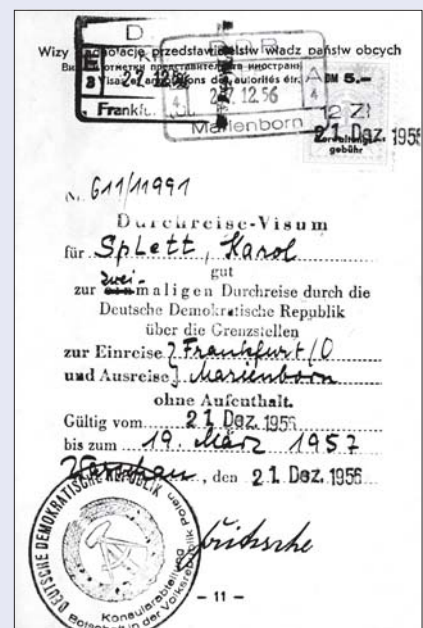 Wizy i adnotacje przedstawicielstw władz państw obcych
Visas et annotations des autorités étr.
D
E
3
27.12.56
Frankfu.
D D R
A
4
27.12.56
4
Marienborn
DM 5.—
12 Zl
Verwaltungs-
gebühr
21. Dez. 1956
Nr. 611/11991
Durchreise-Visum
für Splett, Karol
gut
zwei-
zur einmaligen Durchreise durch die
Deutsche Demokratische Republik
über die Grenzstellen
zur Einreise } Frankfurt/O
und Ausreise } Marienborn
ohne Aufenthalt.
Gültig vom 21. Dez. 1956
bis zum 19. März 1957
Warschau, den 21. Dez. 1956
DEUTSCHE DEMOKRATISCHE REPUBLIK
Konsularabteilung
Botschaft in der Volksrepublik Polen
– 11 –